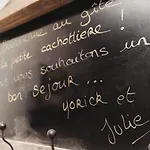 Bienvenue au gîte
la petite cachottière !
et vous souhaitons un
bon séjour ...
Yorick et
Julie